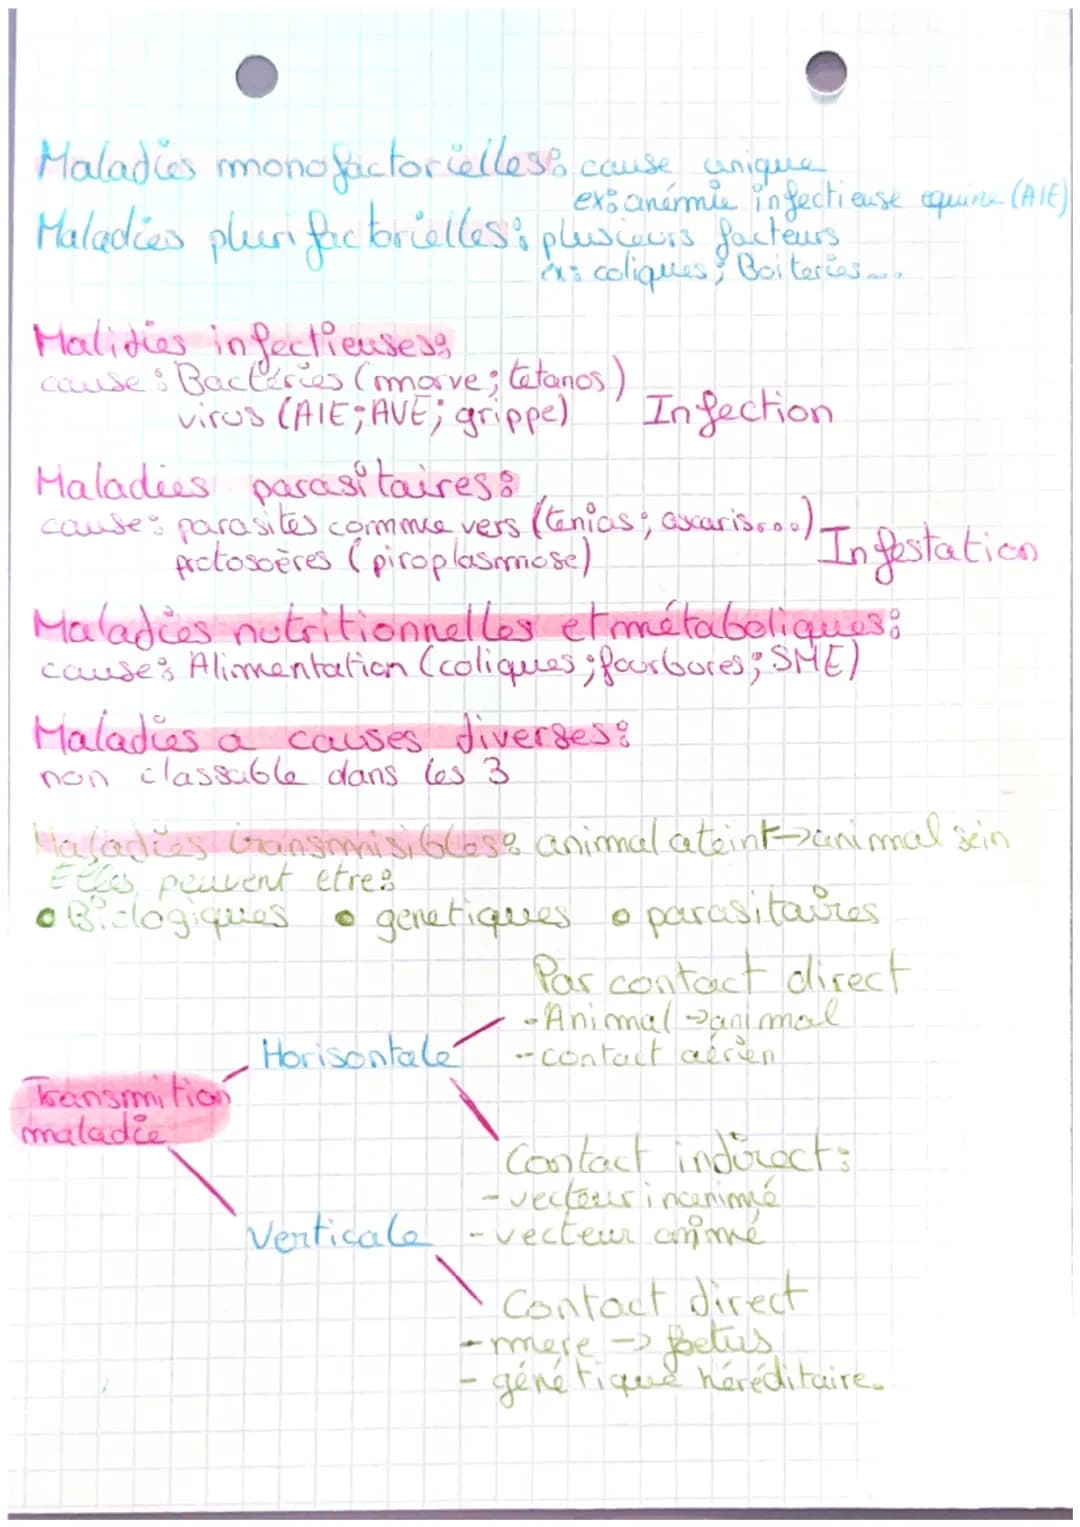 Maladies monofactorielles: cause unique
ex: anémie infectieuse equine (AIE)
Maladies plurifactorielles: plusieurs facteurs
ex: coliques; Boiteries...
Malidies infectieuses:
cause: Bactéries (morve; tetanos)
virus (AIE; AVE; grippe)
Infection
Maladies parasitaires:
cause: parasites comme vers (tenias; ascaris...)
protosoères (piroplasmose)
Infestation
Maladies nutritionnelles et métaboliques:
cause: Alimentation (coliques; fourbures; SME)
Maladies a causes diverses:
non classable dans les 3
Maladies transmisibles: animal ateint→animal sein
Elles peuvent etre:
• Biologiques • genetiques • parasitaires
Par contact direct
- Animal → animal
- contact aérien
Horisontale
Transmition
maladie
Contact indirect:
- vecteur inanimé
- vecteur animé
Verticale
Contact direct
- mere → foetus
- génétique héréditaire.